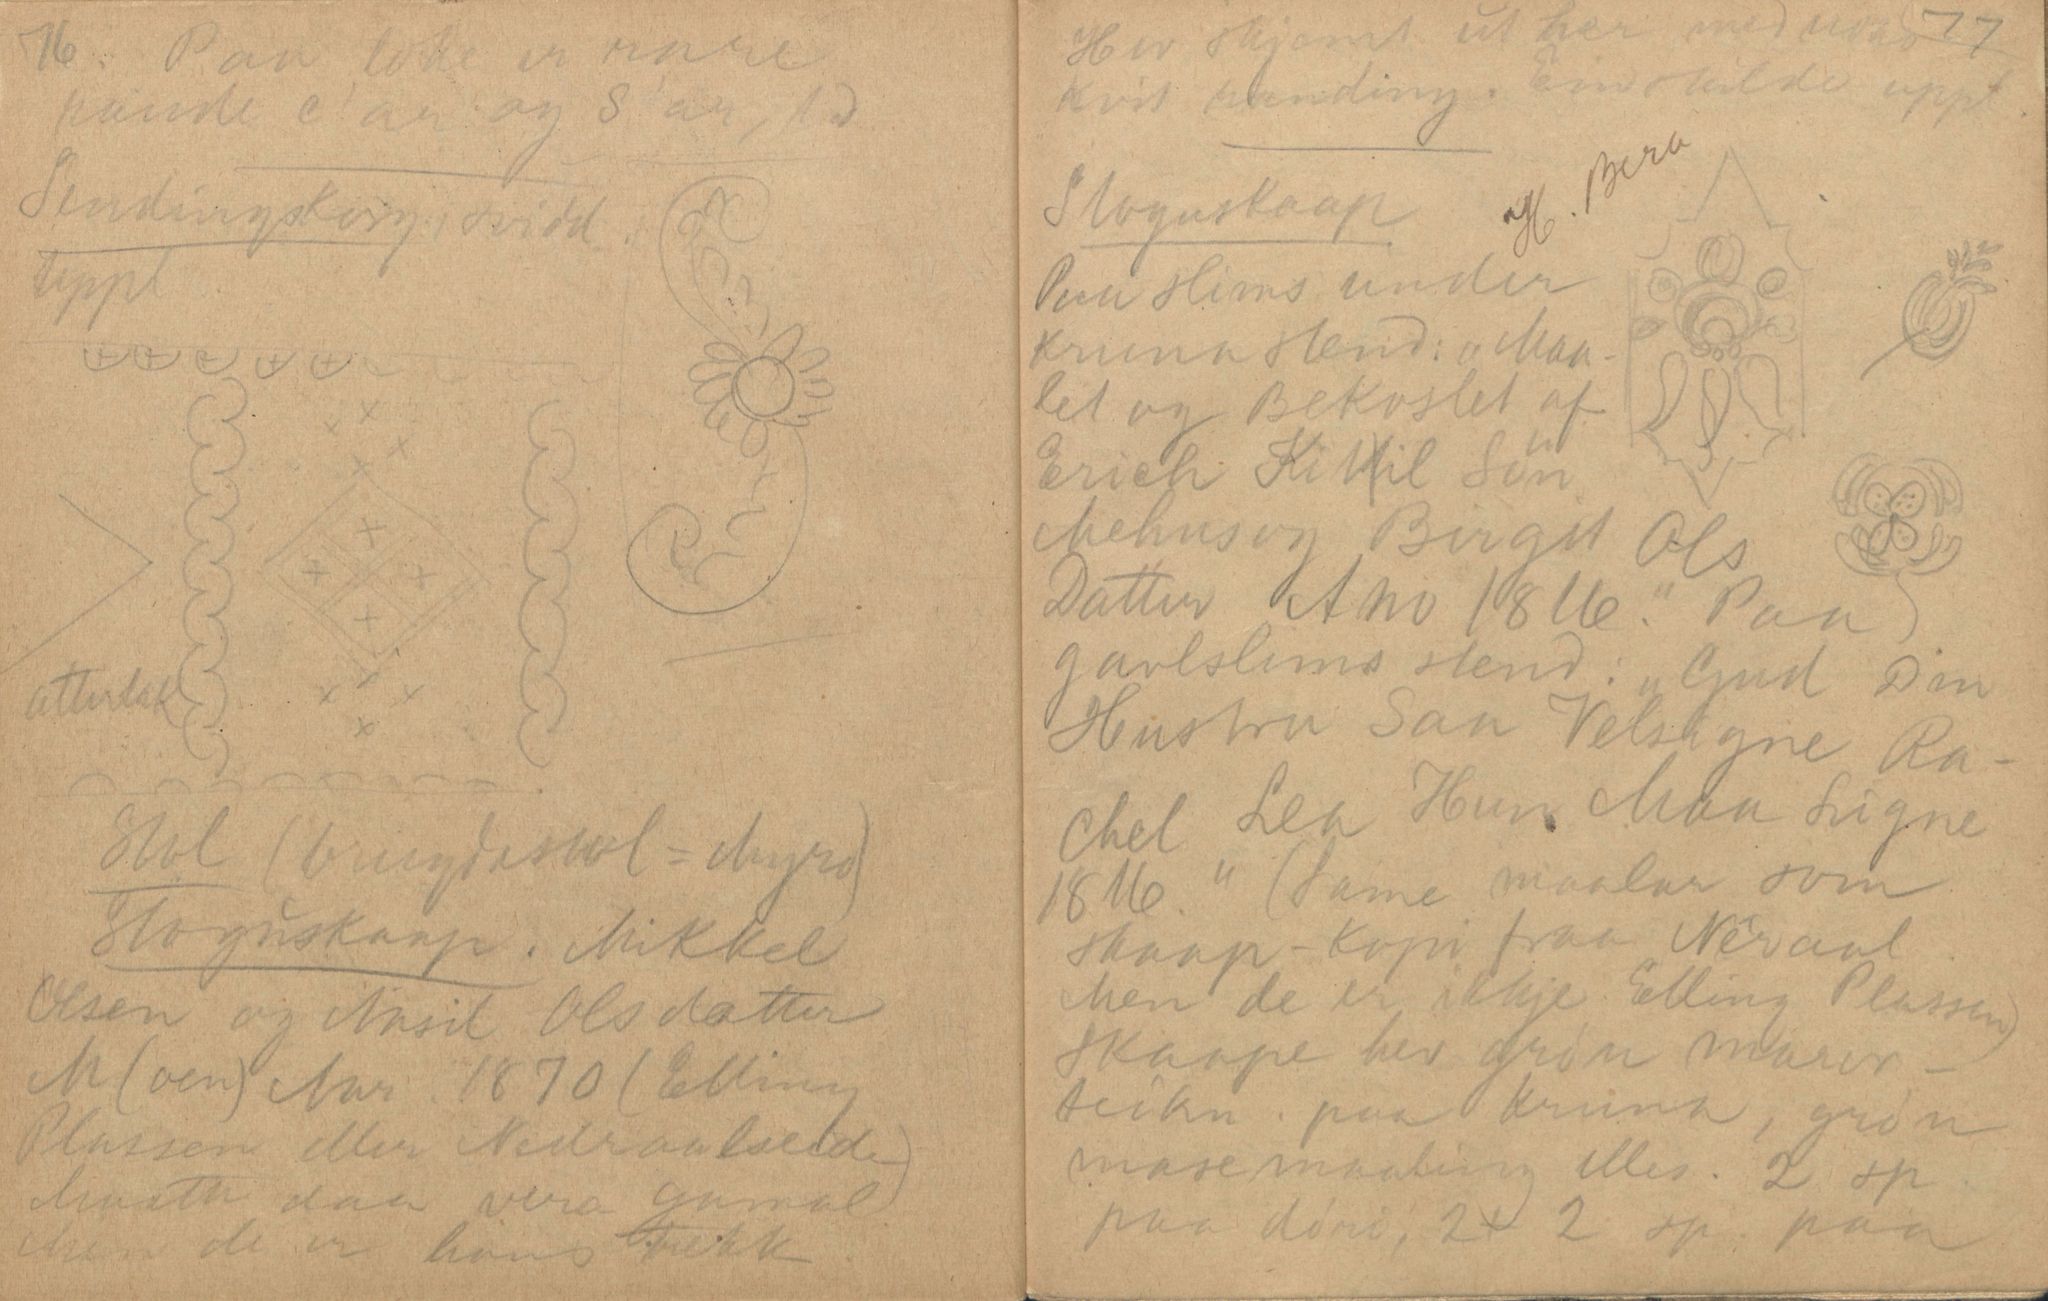 76. Paa loke er rare
runde c'ar og S'ar, td
Sendingskorg, svidd.
uppl
atterlok
Stol (brugdastol = Myro)
Stoguskaap. Mikkel
Olsen og Aasil Olsdatter
M(oen) Aar. 1870 (Elling
Plassen eller Nedraalseide)
Maatte daa vera gamal
Men de er hans trekk
77
Hev skjemt ut her med
kvit. Einskilde uppl.
H. Bera
Stoguskaap
Paa slims under
kruna stend: "Maa-
let og Bekostet af
Erich Kittil Sön
Mehus og Birgit Ols
Datter Ano 1816." Paa
gavlslims stend: "Gud Din
Hustru Saa Velsigne Ra-
chel Lea Hun Maa Ligne
1816." (Same maalar som
skaap-kopi fraa Neraal
Men de er ikkje Elling Plassen)
Skaape hev grön marer-
teikn. paa kruna, grön
mase maaling elles. 2 sp.
paa döri, 2 x 2 sp. paa